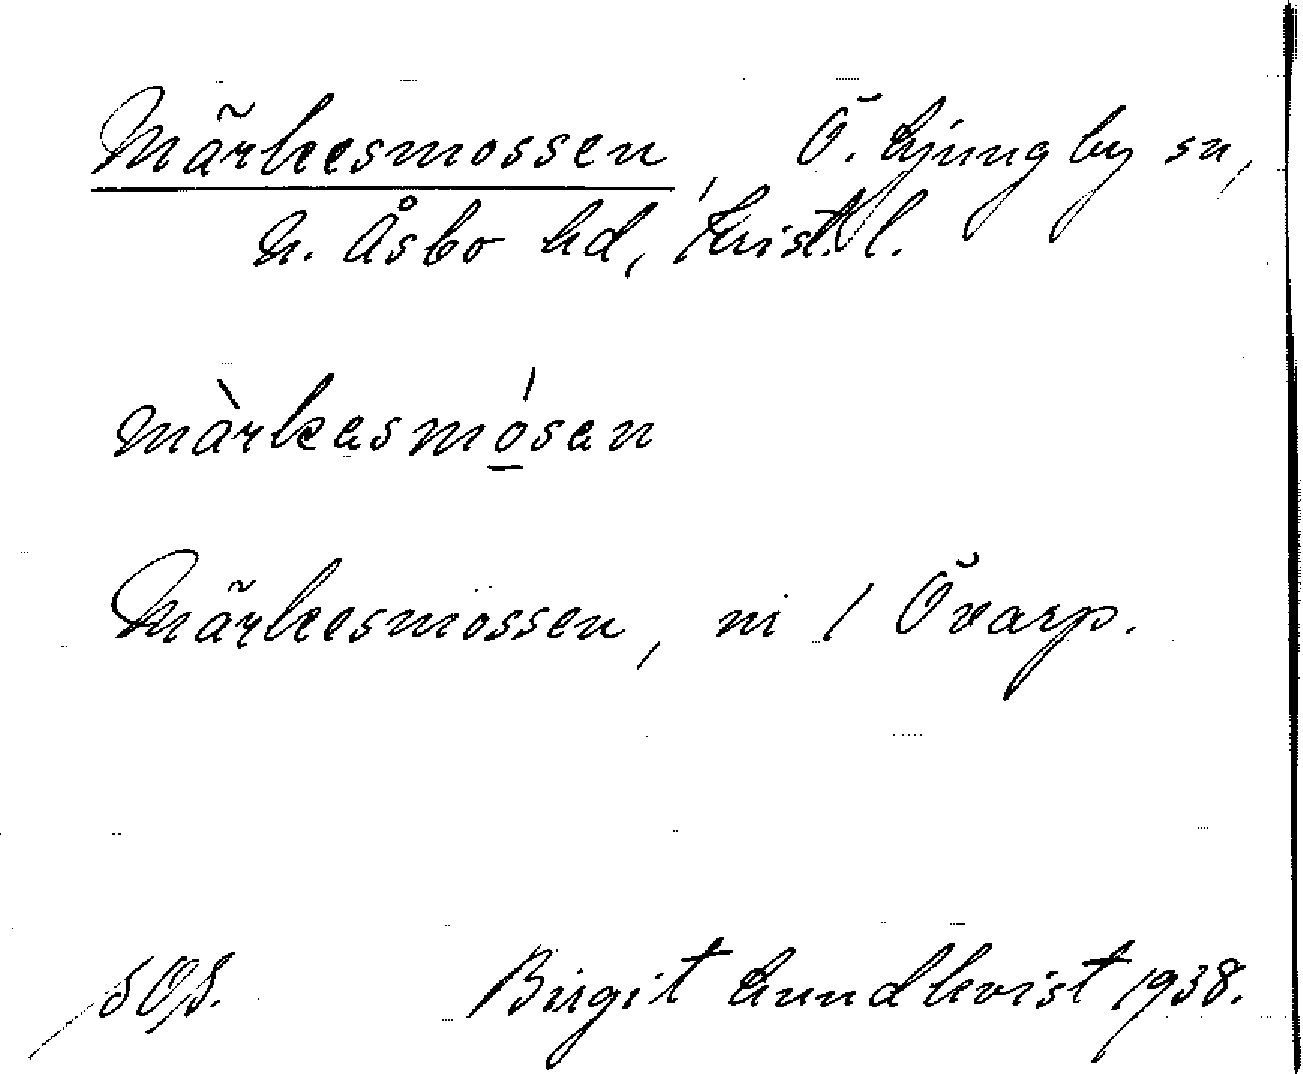 Märkesmossen, Ö. Ljungby sn,
N. Åsbo hd, Krist. l.
màrkasmósan
Märkesmossen, m i Övarp.
SOS. Birgit Lundkvist 1938.